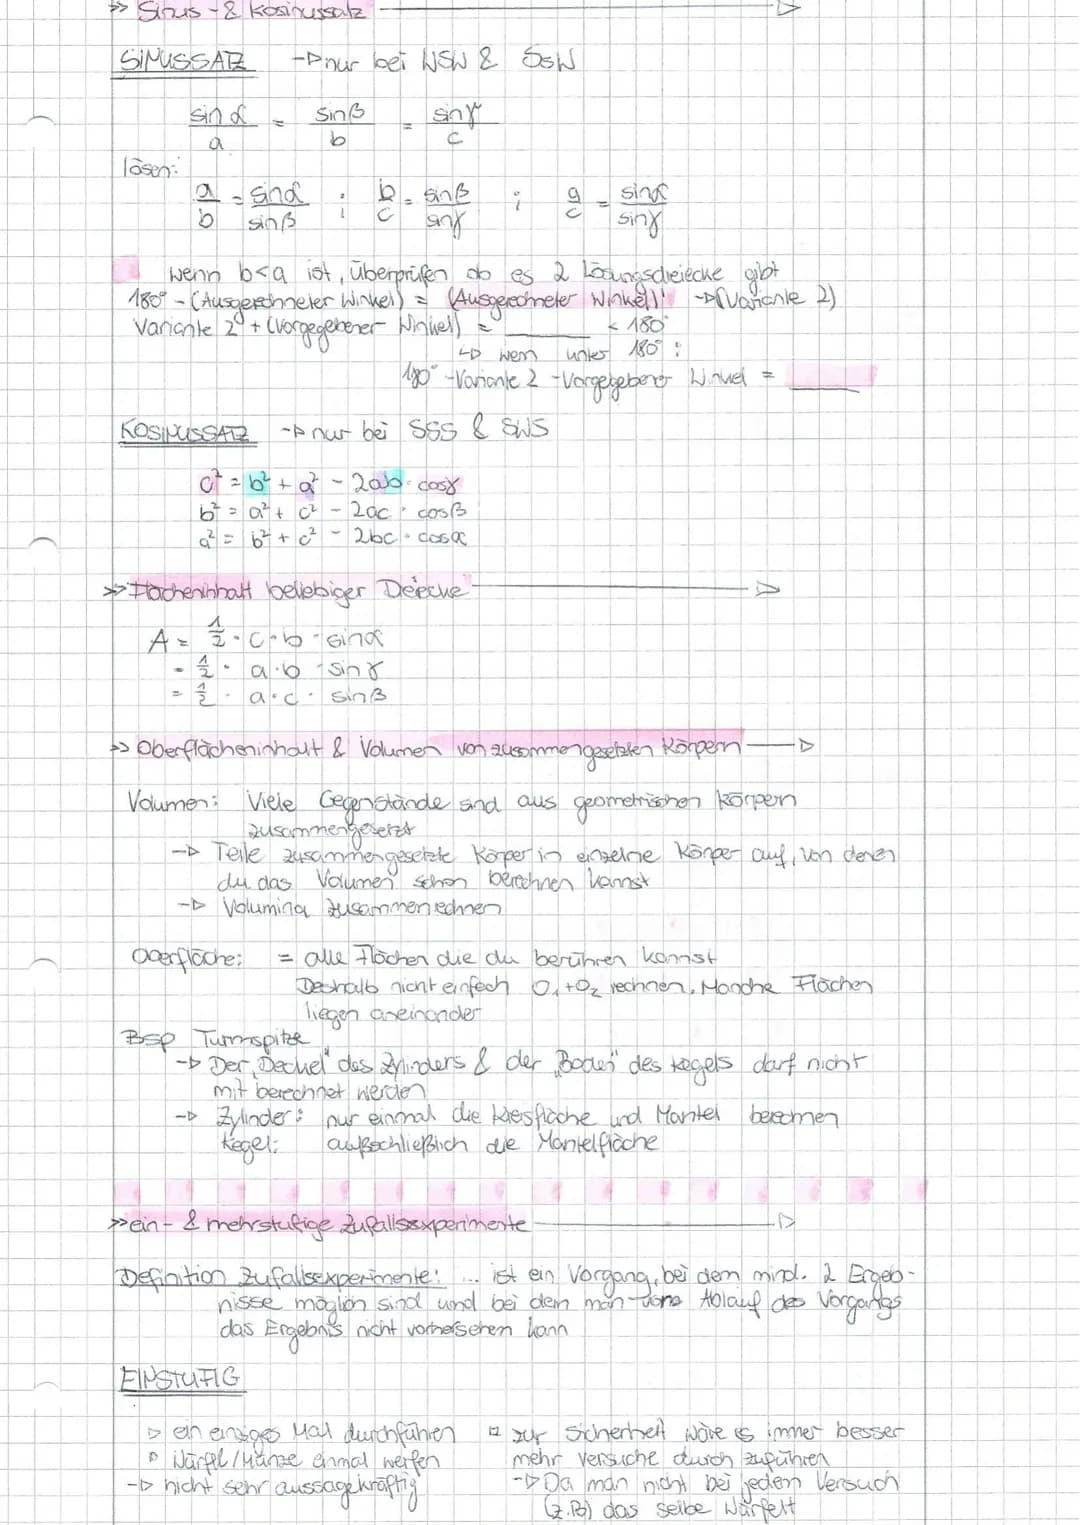 >> Sinus - & Kosinussatz
SINUSSATZ -> nur bei WSW & SSW
sin α / a = sin β / b = sin γ / c
lösen:
a/b = sin α / sin β ; b/c = sin β / sin γ ; a/c = sin α / sin γ
wenn b<a ist, überprüfen ob es 2 Lösungsdreiecke gibt
180° - (Ausgerechneter Winkel) = (Ausgerechneter Winkel)' -> (Variante 2)
Variante 2 + (Vorgegebener Winkel) = ______ < 180°
↳ wenn unter 180° :
180° - Variante 2 - Vorgegebener Winkel = ______
KOSINUSSATZ -> nur bei SSS & SWS
c² = b² + a² - 2ab · cos γ
b² = a² + c² - 2ac · cos β
a² = b² + c² - 2bc · cos α
>> Flächeninhalt beliebiger Dreiecke
A = 1/2 · c · b · sin α
= 1/2 · a · b · sin γ
= 1/2 · a · c · sin β
>> Oberflächeninhalt & Volumen von zusammengesetzten Körpern
Volumen: Viele Gegenstände sind aus geometrischen Körpern
zusammengesetzt
-> Teile zusammengesetzte Körper in einzelne Körper auf, von denen
du das Volumen schon berechnen kannst
-> Volumina zusammenrechnen
Oberfläche: = alle Flächen die du berühren kannst
Deshalb nicht einfach O₁+O₂ rechnen. Manche Flächen
liegen aneinander
Bsp Turmspitze
-> Der „Deckel" des Zylinders & der „Boden" des Kegels darf nicht
mit berechnet werden
-> Zylinder: nur einmal die Kreisfläche und Mantel berechnen
Kegel: außschließlich die Mantelfläche
>> ein - & mehrstufige Zufallsexperimente
Definition Zufallsexperimente: ... ist ein Vorgang, bei dem mind. 2 Ergeb-
nisse möglich sind und bei dem man vorm Ablauf des Vorgangs
das Ergebnis nicht vorhersehen kann
EINSTUFIG
▷ ein einziges Mal durchführen
▷ Würfel/Münze einmal werfen
-> nicht sehr aussagekräftig
zur Sicherheit wäre es immer besser
mehr Versuche durch zuführen
-> Da man nicht bei jedem Versuch
(z.B) das selbe Würfelt